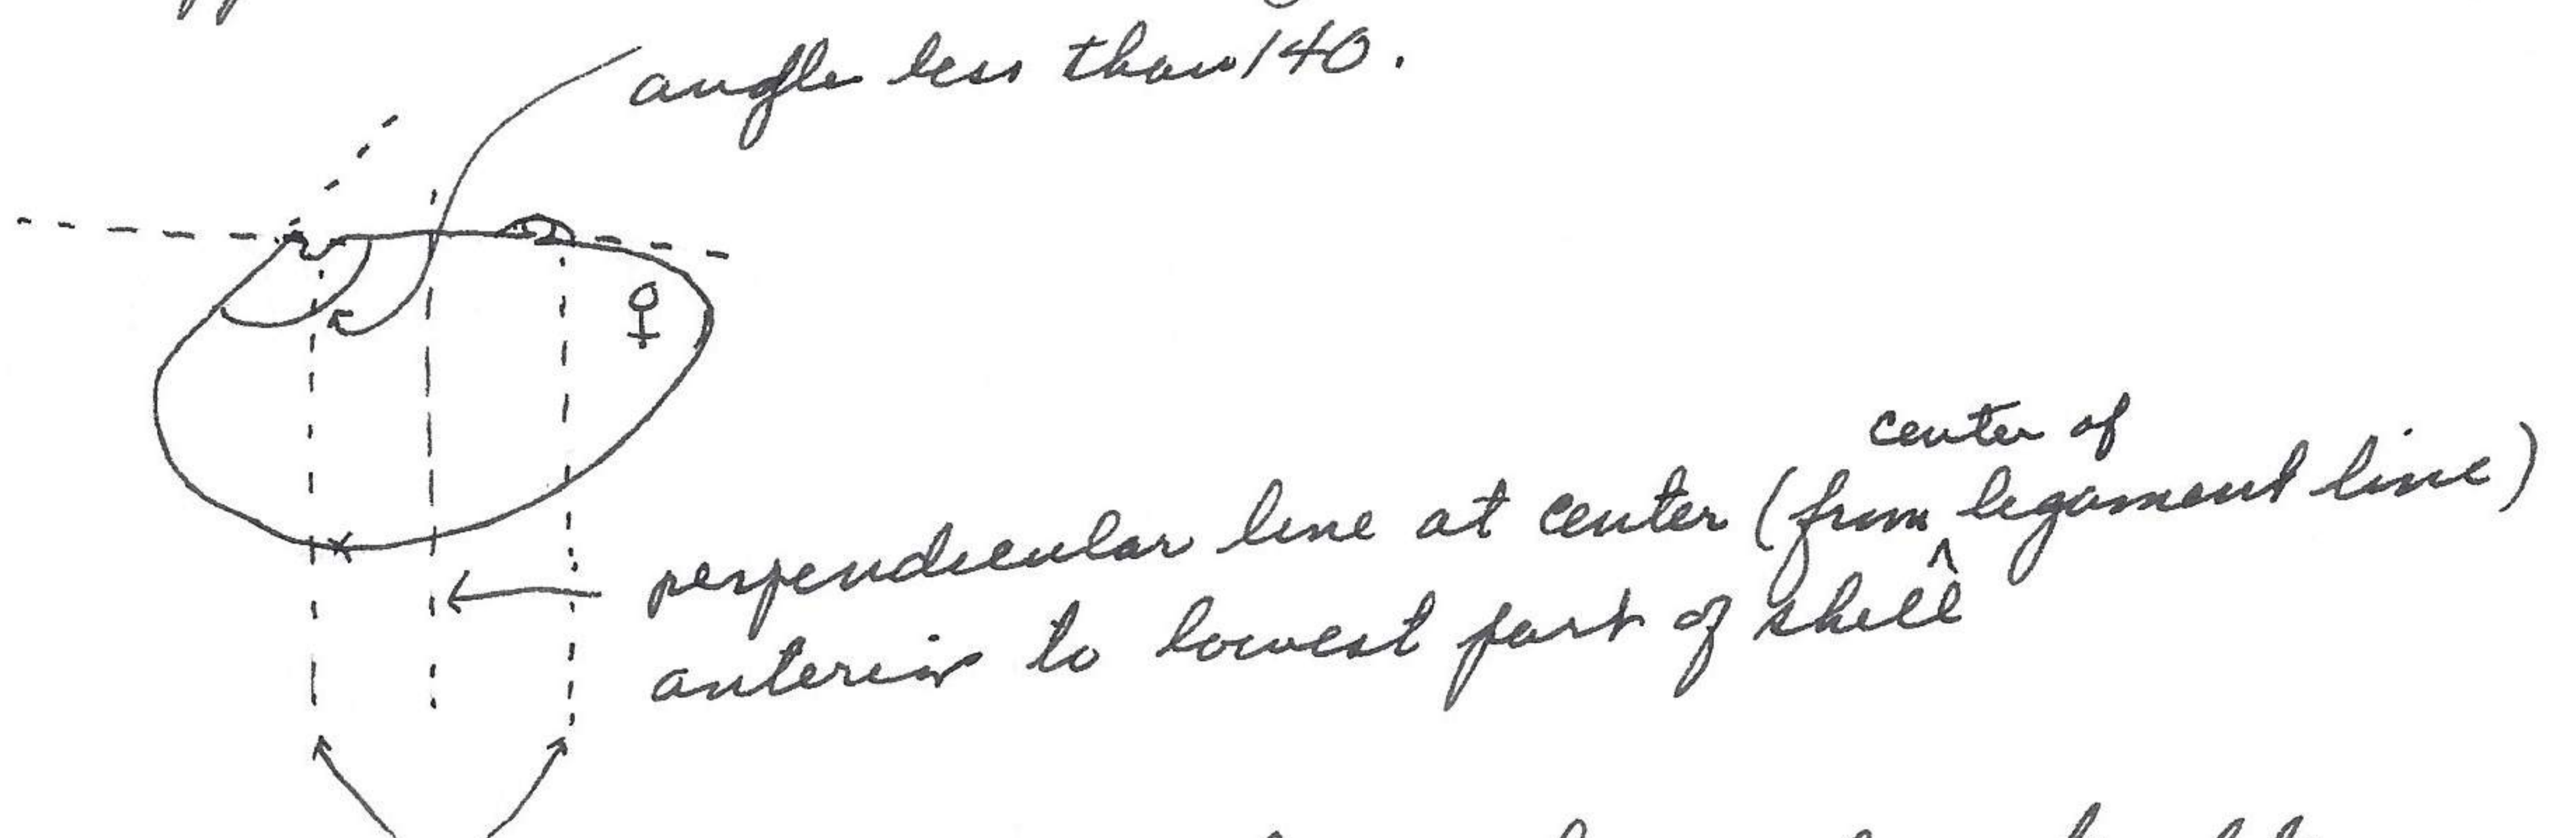 angle less than 140.
♀
center of
perpendicular line at center (from ^ ligament line)
anterior to lowest part of shell